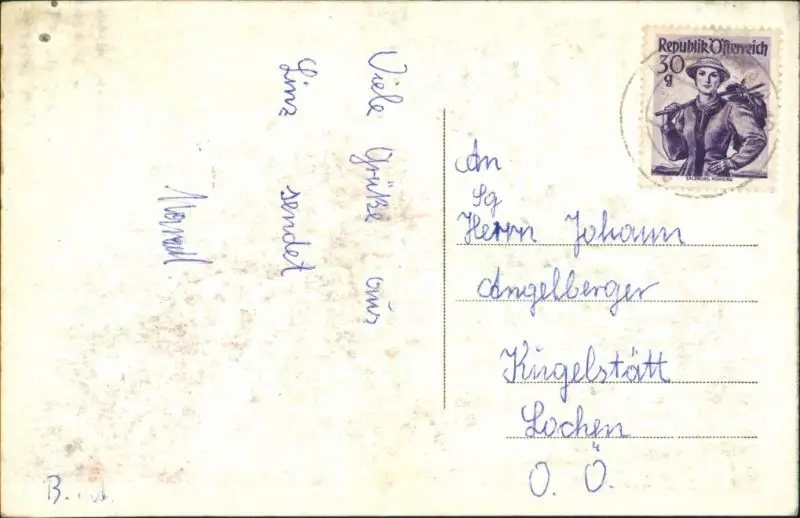 Viele Grüße aus
Linz sendet
An
Sg
Herrn Johann
Angelberger
Kugelstätt
Lochen
O. Ö.
Republik Österreich
30
g
SALZBURG, PONGAU
B.